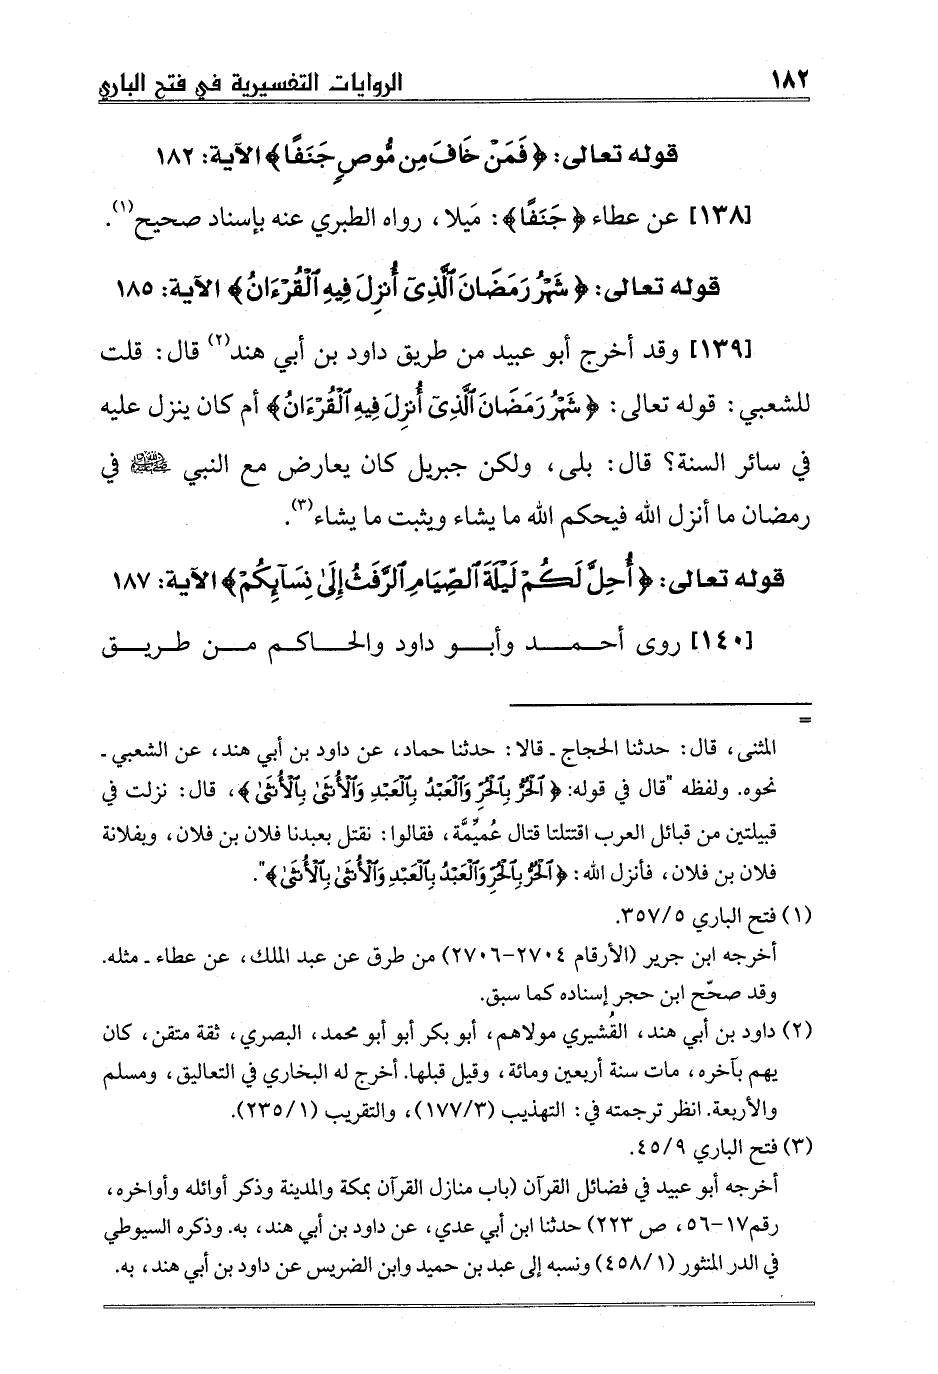 ١٨٢ الروايات التفسيرية في فتح الباري
قوله تعالى: ﴿ فَمَنْ خَافَ مِن مُّوصٍ جَنَفًا ﴾ الآية: ١٨٢
[١٣٨] عن عطاء ﴿ جَنَفًا ﴾: مَيلا، رواه الطبري عنه بإسناد صحيح(١).
قوله تعالى: ﴿ شَهْرُ رَمَضَانَ ٱلَّذِىٓ أُنزِلَ فِيهِ ٱلْقُرْءَانُ ﴾ الآية: ١٨٥
[١٣٩] وقد أخرج أبو عبيد من طريق داود بن أبي هند(٢) قال: قلت
للشعبي: قوله تعالى: ﴿ شَهْرُ رَمَضَانَ ٱلَّذِىٓ أُنزِلَ فِيهِ ٱلْقُرْءَانُ ﴾ أم كان ينزل عليه
في سائر السنة؟ قال: بلى، ولكن جبريل كان يعارض مع النبي ﷺ في
رمضان ما أنزل الله فيحكم الله ما يشاء ويثبت ما يشاء(٣).
قوله تعالى: ﴿ أُحِلَّ لَكُمْ لَيْلَةَ ٱلصِّيَامِ ٱلرَّفَثُ إِلَىٰ نِسَآئِكُمْ ﴾ الآية: ١٨٧
[١٤٠] روى أحمد وأبو داود والحاكم من طريق
=
المثنى، قال: حدثنا الحجاج ـ قالا: حدثنا حماد، عن داود بن أبي هند، عن الشعبي ـ
نحوه. ولفظه "قال في قوله: ﴿ ٱلْحُرُّ بِٱلْحُرِّ وَٱلْعَبْدُ بِٱلْعَبْدِ وَٱلْأُنثَىٰ بِٱلْأُنثَىٰ ﴾، قال: نزلت في
قبيلتين من قبائل العرب اقتتلتا قتال عُمِيِّمَّة، فقالوا: نقتل بعبدنا فلان بن فلان، وبفلانة
فلان بن فلان، فأنزل الله: ﴿ ٱلْحُرُّ بِٱلْحُرِّ وَٱلْعَبْدُ بِٱلْعَبْدِ وَٱلْأُنثَىٰ بِٱلْأُنثَىٰ ﴾".
(١) فتح الباري ٣٥٧/٥.
أخرجه ابن جرير (الأرقام ٢٧٠٤-٢٧٠٦) من طرق عن عبد الملك، عن عطاء ـ مثله.
وقد صحّح ابن حجر إسناده كما سبق.
(٢) داود بن أبي هند، القُشيري مولاهم، أبو بكر أبو أبو محمد، البصري، ثقة متقن، كان
يهم بآخره، مات سنة أربعين ومائة، وقيل قبلها. أخرج له البخاري في التعاليق، ومسلم
والأربعة. انظر ترجمته في: التهذيب (١٧٧/٣)، والتقريب (٢٣٥/١).
(٣) فتح الباري ٤٥/٩.
أخرجه أبو عبيد في فضائل القرآن (باب منازل القرآن بمكة والمدينة وذكر أوائله وأواخره،
رقم١٧-٥٦، ص ٢٢٣) حدثنا ابن أبي عدي، عن داود بن أبي هند، به. وذكره السيوطي
في الدر المنثور (٤٥٨/١) ونسبه إلى عبد بن حميد وابن الضريس عن داود بن أبي هند، به.